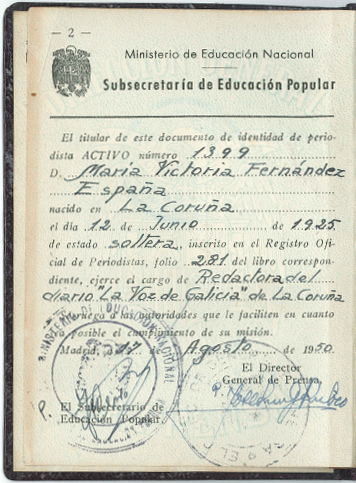 — 2 —
Ministerio de Educación Nacional
Subsecretaría de Educación Popular
El titular de este documento de identidad de perio-
dista ACTIVO número 1399
D. María Victoria Fernández
España
nacido en La Coruña
el día 12 de Junio de 1925
de estado soltera, inscrito en el Registro Ofi-
cial de Periodistas, folio 281 del libro correspon-
diente, ejerce el cargo de Redactora del
diario "La Voz de Galicia" de La Coruña
Se ruega a las autoridades que le faciliten en cuanto
sea posible el cumplimiento de su misión.
Madrid, 17 de Agosto de 1950
El Director
General de Prensa,
P.
El Subsecretario de
Educación Popular,
MINISTERIO EDUCACION NACIONAL